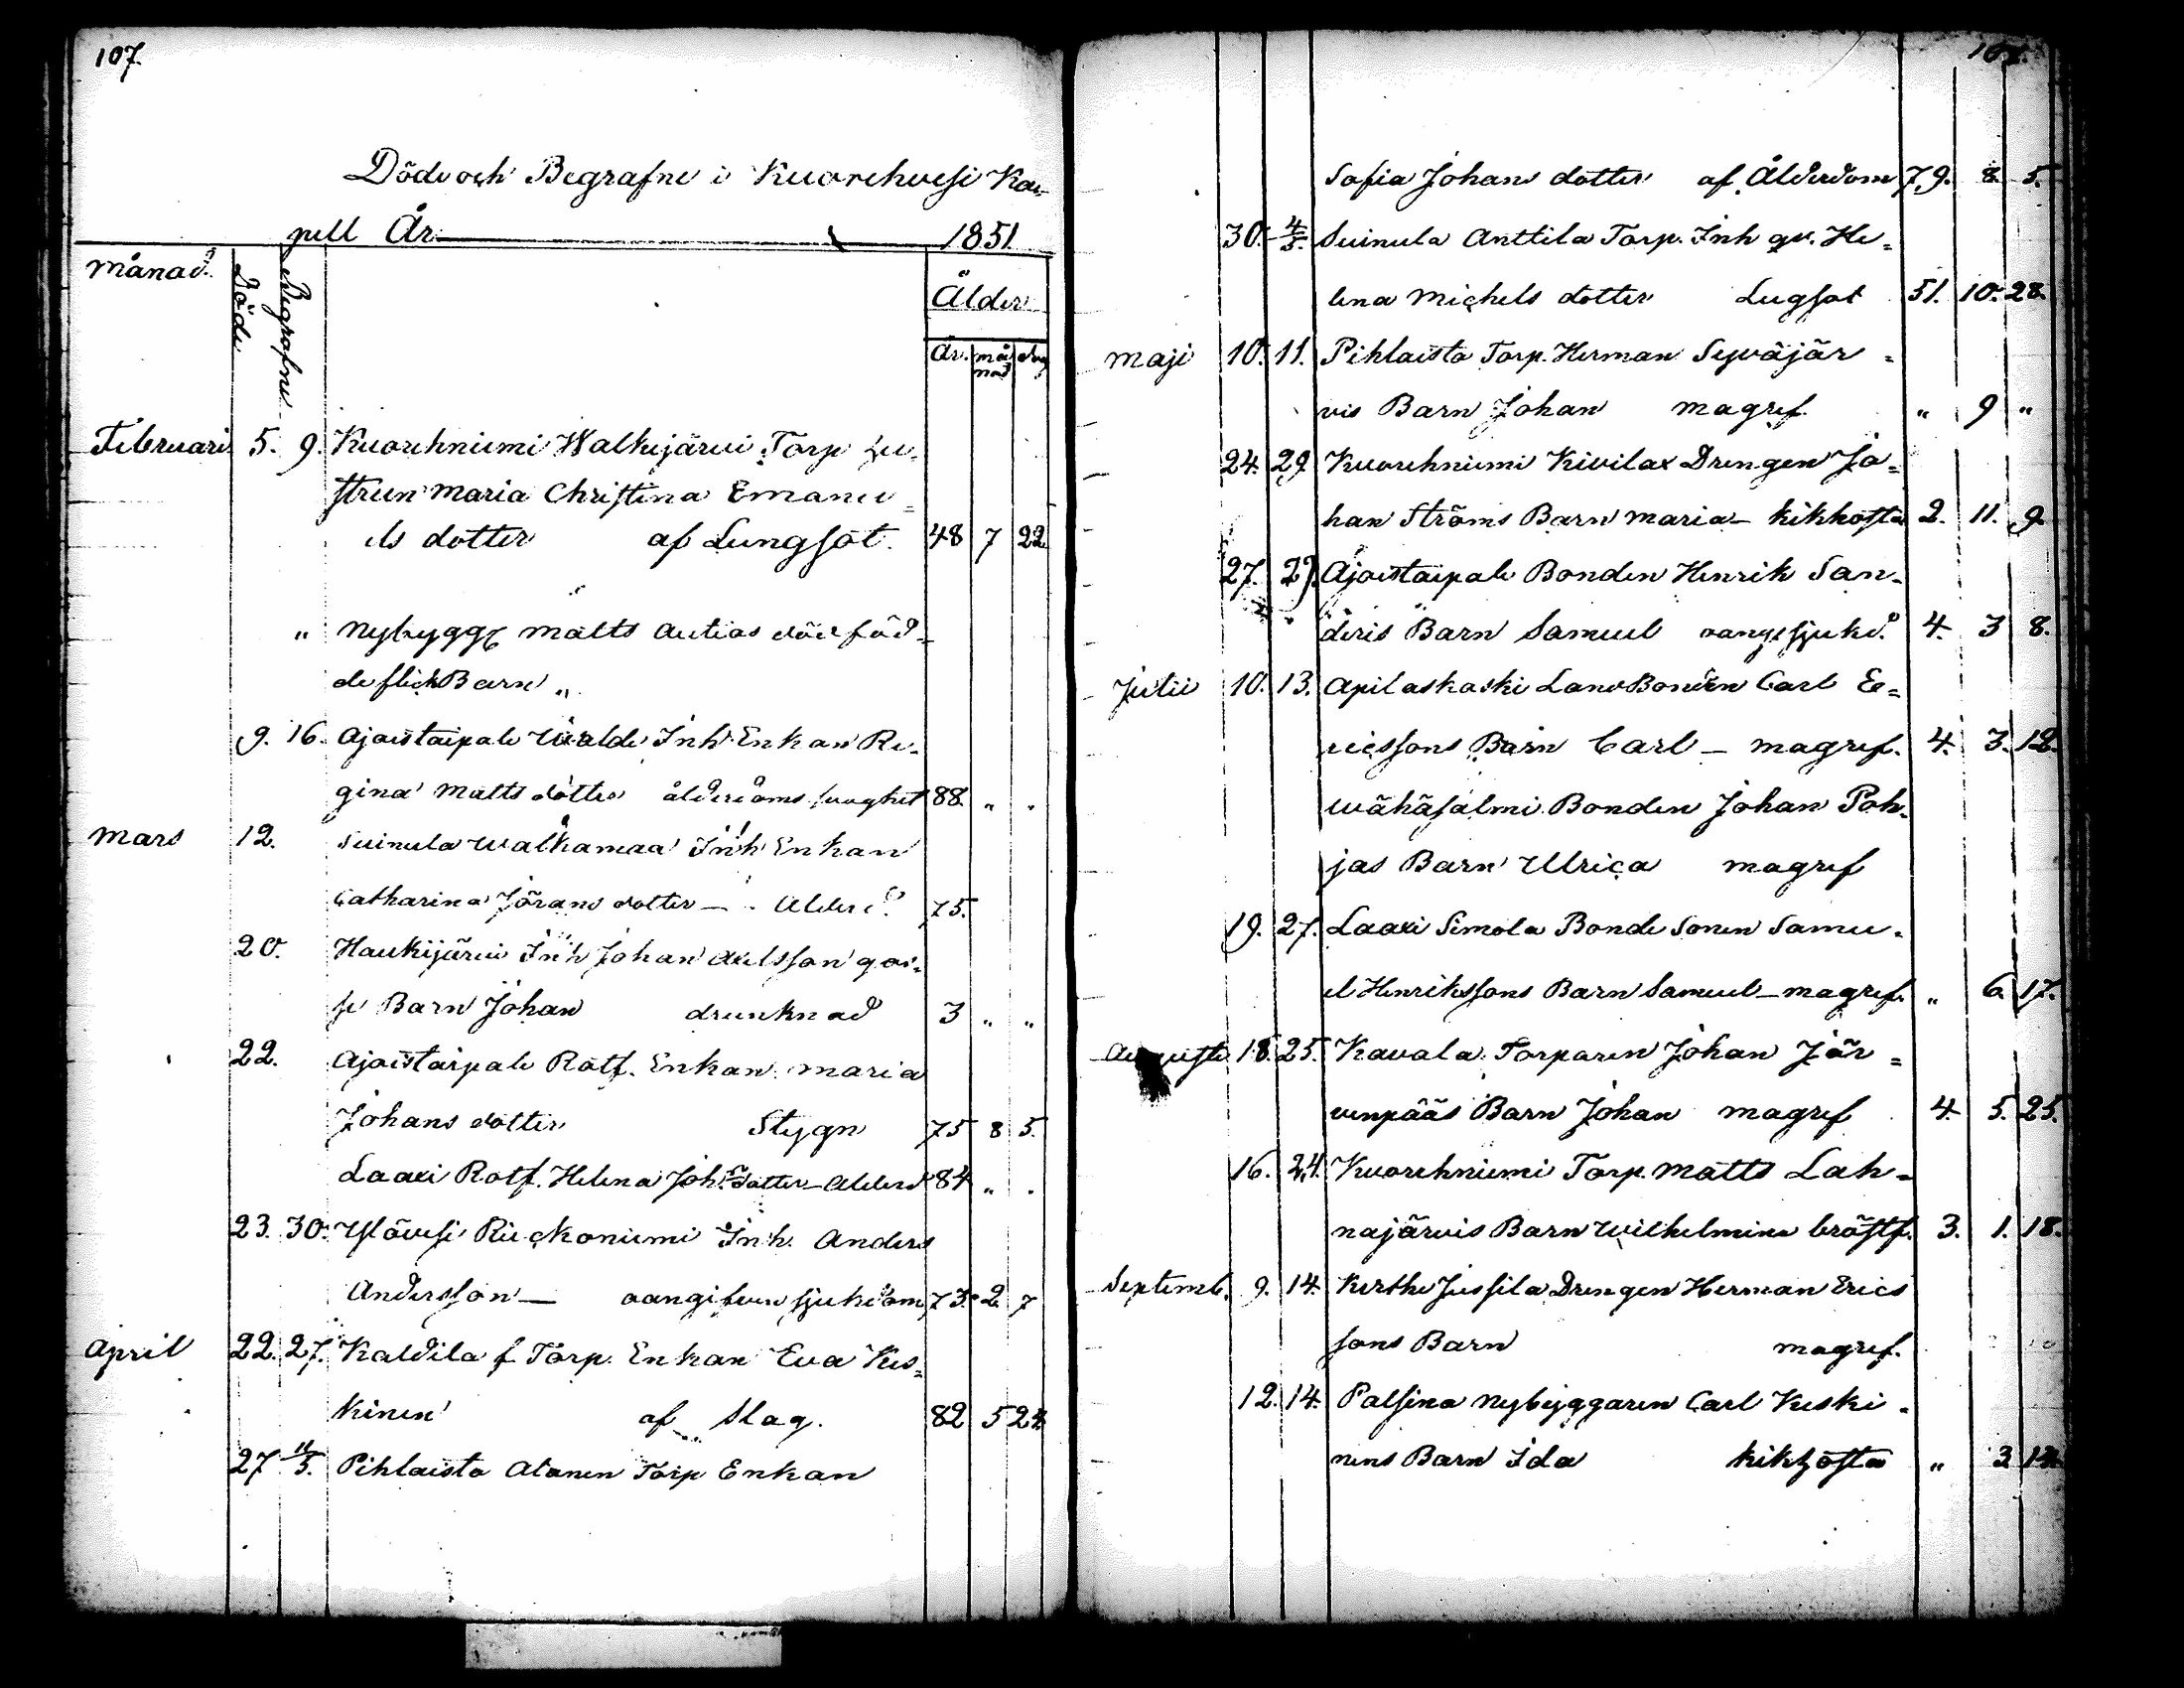 107.
Döde och Begrafne i Kuorehvesi Ka-
pell År 1851
Månad. Döde Begrafne Ålder
År. månad dag
Februari 5. 9. Kuorehniemi Walkejärvi Torp hu-
strun Maria Christina Emanu=
els dotter af Lungsot. 48 7 22
" Nybygg. Matts Autios dödföd-
de flickBarn "
9. 16. Ajostaipale Uralde Inh. Enkan Re-
gina Matts dotter ålderdoms svaghet 88. " "
Mars 12. Suinula Walkamaa Inh Enkan
Catharina Jörans dotter — Ålderd. 75.
20. Haukijärvi Inh Johan Axelsson
Barn Johan drunknad 3 " "
22. Ajostaipale Rotf. Enkan Maria
Johans dotter Stygn 75 8 5.
Laaxi Rotf. Helena Joh. dotter — Alderd 84 " "
23. 30. Ylövesi Rieckoniemi Inh. Anders
Andersson — oangifven sjukdom 73. 2 7
April 22. 27. Kaldila f. Torp. Enkan Eva Kes=
kinen af Slag. 82 5 24
27 11/5. Pihlaisto Alanen Torp Enkan
107.
Sofia Johans dotter af Ålderdom 79. 8. 5.
30. 4/5. Suinula Anttila Torp. Inh qv. He=
lena Michels dotter Lugsot 51. 10. 28.
Maji 10. 11. Pihlaisto Torp. Herman Syväjär=
vis Barn Johan magref. " 9 "
24. 29 Kuorehniemi Kivilax Drengen Jo=
han Ströms Barn Maria — kikhosta 2. 11. 9.
27. 29. Ajostaipale Bonden Henrik San-
deris Barn Samuel oang. sjukd. 4. 3 8.
Julii 10. 13. Apilaskoski LandBonden Carl Er=
icssons Barn Carl — magref. 4. 3. 18.
Wähäsalmi Bonden Johan Poh-
jas Barn Ulrica magref
19. 27. Laaxi Simola Bonde Sonen Samu-
el Henrikssons Barn Samuel — magref. " 6. 17.
Augusti 18. 25. Kavala Torparen Johan Jär=
venpääs Barn Johan magref 4. 5. 25.
16. 24. Kuorehniemi Torp. Matts Lah=
najärvis Barn Wilhelmina bröstf. 3. 1. 18.
Septemb. 9. 14. Kerthe Jussila Drengen Herman Erics
sons Barn magref.
12. 14. Palsina Nybyggaren Carl Keski-
nens Barn Ida kikhosta " 3